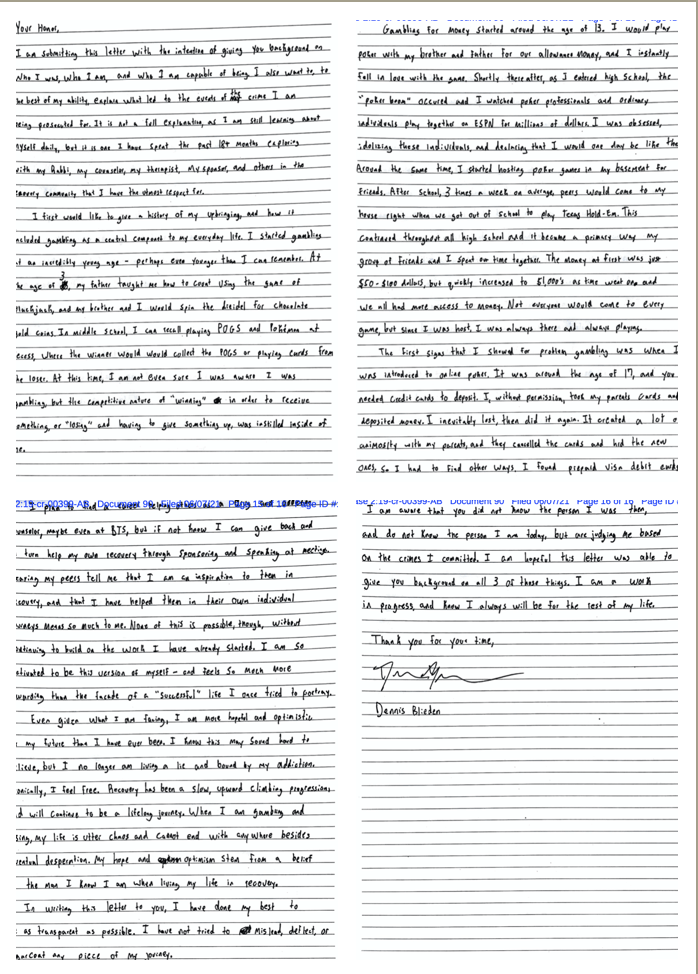 Your Honor,
I am submitting this letter with the intention of giving you background on
who I was, who I am, and who I am capable of being. I also want to, to
the best of my ability, explain what led to the events of the crime I am
being prosecuted for. It is not a full explanation, as I am still learning about
myself daily, but it is one I have spent the past 18+ months exploring
with my Rabbi, my counselor, my therapist, my sponsor, and others in the
recovery community that I have the utmost respect for.
I first would like to give a history of my upbringing, and how it
included gambling as a central component to my everyday life. I started gambling
at an incredibly young age - perhaps even younger than I can remember. At
the age of 3, my father taught me how to count using the game of
Blackjack, and my brother and I would spin the dreidel for chocolate
gold coins. In middle school, I can recall playing POGS and Pokémon at
recess, where the winner would would collect the POGS or playing cards from
the loser. At this time, I am not even sure I was aware I was
gambling, but the competitive nature of "winning" in order to receive
something, or "losing" and having to give something up, was instilled inside of
me.
Gambling for money started around the age of 13. I would play
poker with my brother and father for our allowance money, and I instantly
fell in love with the game. Shortly thereafter, as I entered high school, the
"poker boom" occured and I watched poker professionals and ordinary
individuals play together on ESPN for millions of dollars. I was obsessed,
idolizing those individuals, and declaring that I would one day be like them.
Around the same time, I started hosting poker games in my basement for
friends. After school, 3 times a week on average, peers would come to my
house right when we got out of school to play Texas Hold-Em. This
continued throughout all high school and it became a primary way my
group of friends and I spent our time together. The money at first was just
$50-$100 dollars, but quickly increased to $1,000's as time went on and
we all had more access to money. Not everyone would come to every
game, but since I was host, I was always there and always playing.
The first signs that I showed for problem gambling was when I
was introduced to online poker. It was around the age of 17, and you
needed credit cards to deposit. I, without permission, took my parents cards and
deposited money. I inevitably lost, then did it again. It created a lot o
animosity with my parents, and they cancelled the cards and hid the new
ones, so I had to find other ways. I found prepaid visa debit cards
2:19-cr-00399-AB Document 90 Filed 06/07/21 Page 15 of 16 Page ID #:
I plan to find a career helping others as a
counselor, maybe even at BTS, but if not know I can give back and
turn help my own recovery through sponsoring and speaking at meetings.
Hearing my peers tell me that I am an inspiration to them in
recovery, and that I have helped them in their own individual
journeys means so much to me. None of this is possible, though, without
continuing to build on the work I have already started. I am so
motivated to be this version of myself - and feels so much more
rewarding than the facade of a "successful" life I once tried to portray.
Even given what I am facing, I am more hopeful and optimistic
my future than I have ever been. I know this may sound hard to
believe, but I no longer am living a lie and bound by my addiction.
Ironically, I feel free. Recovery has been a slow, upward climbing progression,
and will continue to be a lifelong journey. When I am gambling and
using, my life is utter chaos and cannot end with anywhere besides
eventual desperation. My hope and optimism stem from a belief
the man I know I am when living my life in recovery.
In writing this letter to you, I have done my best to
as transparent as possible. I have not tried to mislead, deflect, or
sugarcoat any piece of my journey.
se 2:19-cr-00399-AB Document 90 Filed 06/07/21 Page 16 of 16 Page ID
I am aware that you did not know the person I was then,
and do not know the person I am today, but are judging me based
on the crimes I committed. I am hopeful this letter was able to
give you background on all 3 of those things. I am a work
in progress, and know I always will be for the rest of my life.
Thank you for your time,
Dennis Blieden